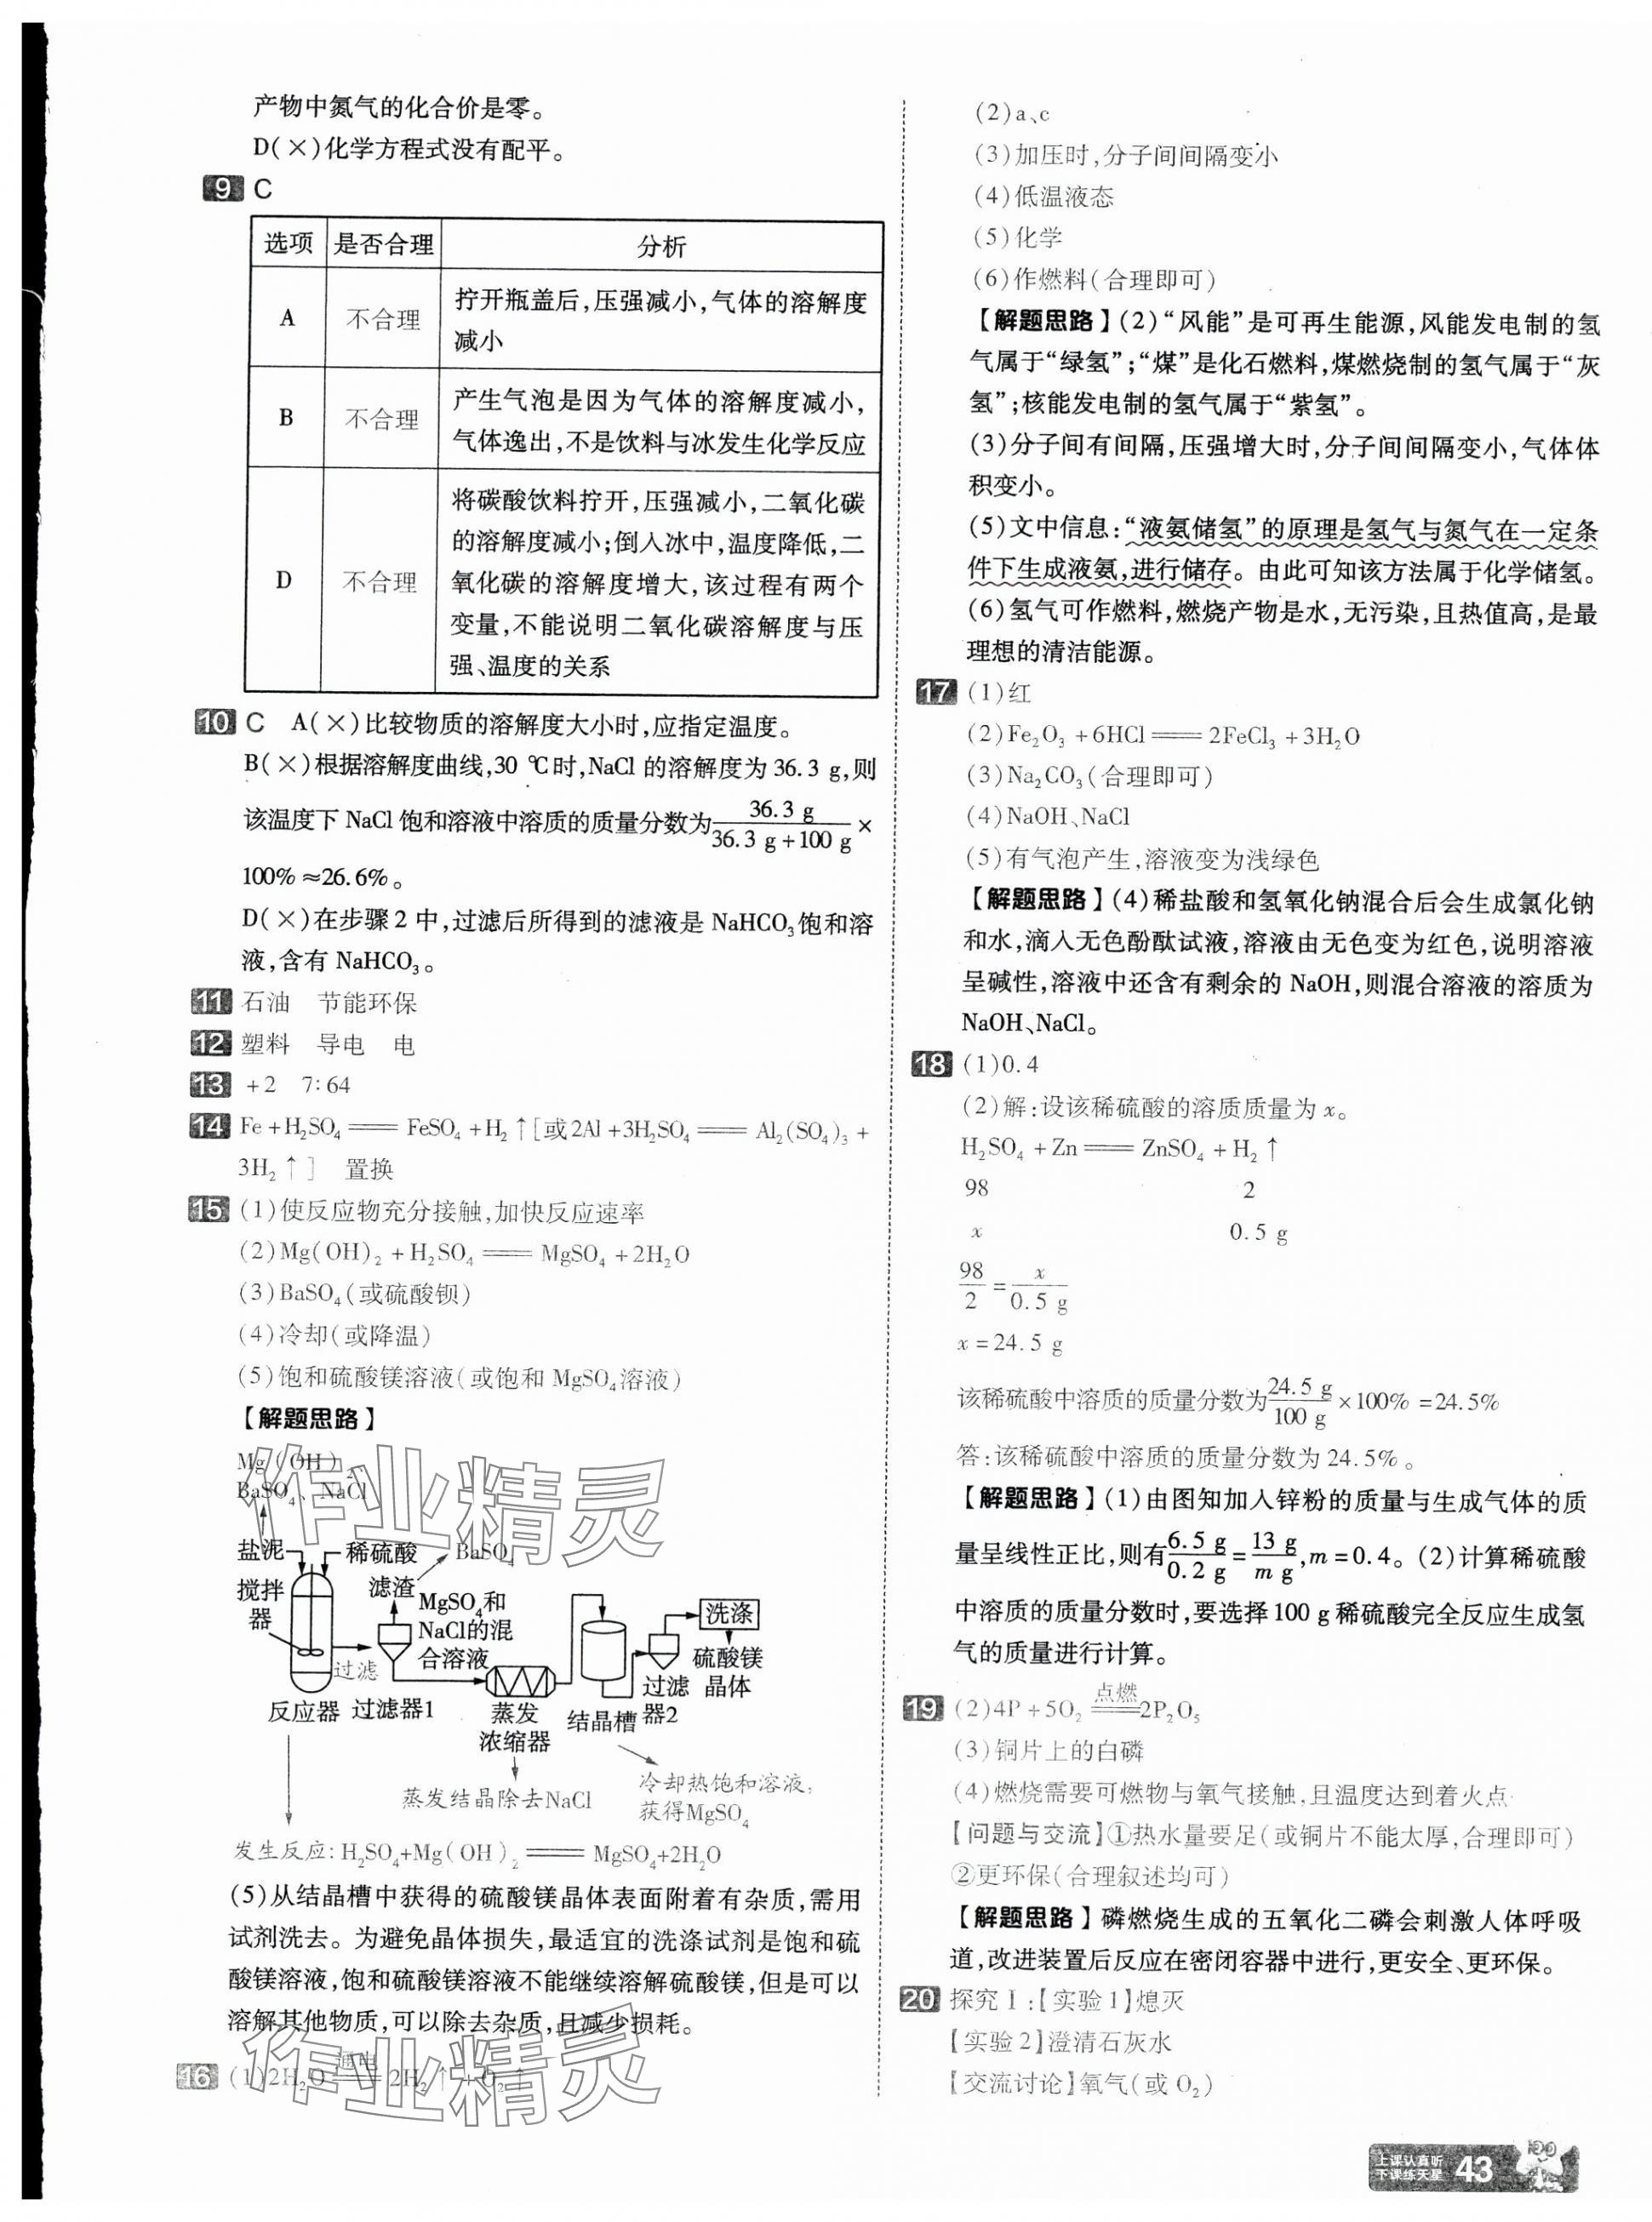 产物中氮气的化合价是零。
D(×)化学方程式没有配平。
9 C
选项 是否合理 分析
A 不合理 拧开瓶盖后,压强减小,气体的溶解度
减小
B 不合理 产生气泡是因为气体的溶解度减小,
气体逸出,不是饮料与冰发生化学反应
D 不合理 将碳酸饮料拧开,压强减小,二氧化碳
的溶解度减小;倒入冰中,温度降低,二
氧化碳的溶解度增大,该过程有两个
变量,不能说明二氧化碳溶解度与压
强、温度的关系
10 C A(×)比较物质的溶解度大小时,应指定温度。
B(×)根据溶解度曲线,30 ℃时,NaCl 的溶解度为 36.3 g,则
该温度下 NaCl 饱和溶液中溶质的质量分数为 36.3 g / 36.3 g+100 g ×
100% ≈26.6%。
D(×)在步骤 2 中,过滤后所得到的滤液是 NaHCO₃饱和溶
液,含有 NaHCO₃。
11 石油 节能环保
12 塑料 导电 电
13 +2 7:64
14 Fe+H₂SO₄ ══ FeSO₄+H₂↑[或2Al+3H₂SO₄ ══ Al₂(SO₄)₃+
3H₂↑] 置换
15 (1)使反应物充分接触,加快反应速率
(2)Mg(OH)₂+H₂SO₄ ══ MgSO₄+2H₂O
(3)BaSO₄(或硫酸钡)
(4)冷却(或降温)
(5)饱和硫酸镁溶液(或饱和 MgSO₄溶液)
【解题思路】
Mg(OH)₂、
BaSO₄、NaCl
盐泥 稀硫酸 BaSO₄
搅拌
器
滤渣
MgSO₄和
NaCl的混
合溶液
洗涤
过滤
硫酸镁
晶体
反应器 过滤器1 蒸发
浓缩器
结晶槽
过滤
器2
蒸发结晶除去NaCl
冷却热饱和溶液,
获得MgSO₄
发生反应:H₂SO₄+Mg(OH)₂ ══ MgSO₄+2H₂O
(5)从结晶槽中获得的硫酸镁晶体表面附着有杂质,需用
试剂洗去。为避免晶体损失,最适宜的洗涤试剂是饱和硫
酸镁溶液,饱和硫酸镁溶液不能继续溶解硫酸镁,但是可以
溶解其他物质,可以除去杂质,且减少损耗。
16 (1)2H₂O ══通电══ 2H₂↑+O₂↑
作业精灵
作业精灵
(2)a、c
(3)加压时,分子间间隔变小
(4)低温液态
(5)化学
(6)作燃料(合理即可)
【解题思路】(2)“风能”是可再生能源,风能发电制的氢
气属于“绿氢”;“煤”是化石燃料,煤燃烧制的氢气属于“灰
氢”;核能发电制的氢气属于“紫氢”。
(3)分子间有间隔,压强增大时,分子间间隔变小,气体体
积变小。
(5)文中信息:“液氨储氢”的原理是氢气与氮气在一定条
件下生成液氨,进行储存。由此可知该方法属于化学储氢。
(6)氢气可作燃料,燃烧产物是水,无污染,且热值高,是最
理想的清洁能源。
17 (1)红
(2)Fe₂O₃+6HCl ══ 2FeCl₃+3H₂O
(3)Na₂CO₃(合理即可)
(4)NaOH、NaCl
(5)有气泡产生,溶液变为浅绿色
【解题思路】(4)稀盐酸和氢氧化钠混合后会生成氯化钠
和水,滴入无色酚酞试液,溶液由无色变为红色,说明溶液
呈碱性,溶液中还含有剩余的 NaOH,则混合溶液的溶质为
NaOH、NaCl。
18 (1)0.4
(2)解:设该稀硫酸的溶质质量为 x。
H₂SO₄+Zn ══ ZnSO₄+H₂↑
98 2
x 0.5 g
98/2 = x/0.5 g
x=24.5 g
该稀硫酸中溶质的质量分数为 24.5 g/100 g ×100% =24.5%
答:该稀硫酸中溶质的质量分数为 24.5%。
【解题思路】(1)由图知加入锌粉的质量与生成气体的质
量呈线性正比,则有 6.5 g/0.2 g = 13 g/m g,m=0.4。(2)计算稀硫酸
中溶质的质量分数时,要选择 100 g 稀硫酸完全反应生成氢
气的质量进行计算。
19 (2)4P+5O₂ ══点燃══ 2P₂O₅
(3)铜片上的白磷
(4)燃烧需要可燃物与氧气接触,且温度达到着火点
【问题与交流】①热水量要足(或铜片不能太厚,合理即可)
②更环保(合理叙述均可)
【解题思路】磷燃烧生成的五氧化二磷会刺激人体呼吸
道,改进装置后反应在密闭容器中进行,更安全、更环保。
20 探究Ⅰ:【实验1】熄灭
【实验2】澄清石灰水
【交流讨论】氧气(或 O₂)
上课认真听
下课练天星
43